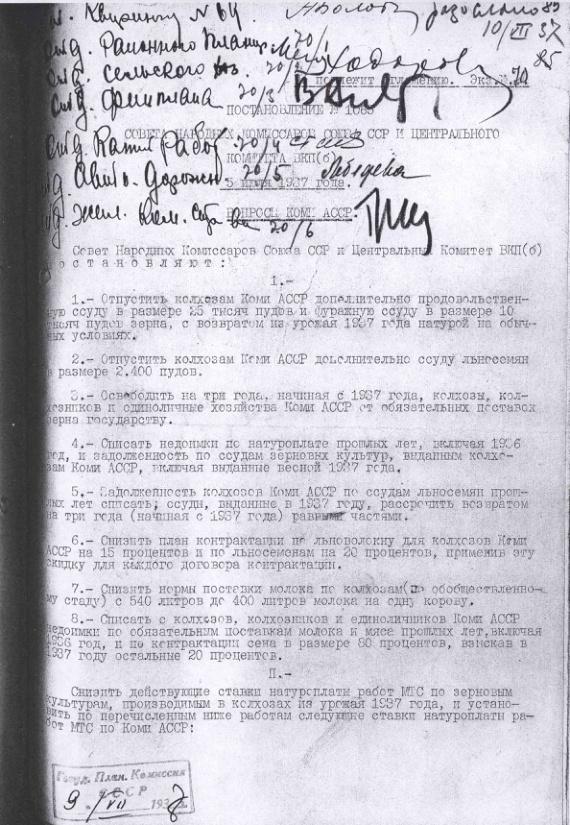 Квиринку N 64
10/VII 37
85
Районного Планир.
сельского хоз. 20/2
подлежит оглашению. Экз.№
20/3
ПОСТАНОВЛЕНИЕ №
СОВЕТА НАРОДНЫХ КОМИССАРОВ СОЮЗА ССР И ЦЕНТРАЛЬНОГО
20/4
КОМИТЕТА ВКП(б)
20/5 Лебедева
5 июля 1937 года.
ВОПРОСЫ КОМИ АССР.
20/6
Совет Народных Комиссаров Союза ССР и Центральный Комитет ВКП(б)
о с т а н о в л я ю т :
I.-
1.- Отпустить колхозам Коми АССР дополнительно продовольствен-
ную ссуду в размере 25 тысяч пудов и фуражную ссуду в размере 10
тысяч пудов зерна, с возвратом из урожая 1937 года натурой на обыч-
ных условиях.
2.- Отпустить колхозам Коми АССР дополнительно ссуду льносемян
в размере 2.400 пудов.
3.- Освободить на три года, начиная с 1937 года, колхозы, кол-
хозников и единоличные хозяйства Коми АССР от обязательных поставок
зерна государству.
4.- Списать недоимки по натуроплате прошлых лет, включая 1936
год, и задолженность по ссудам зерновых культур, выданным колхо-
зам Коми АССР, включая выданные весной 1937 года.
5.- Задолженность колхозов Коми АССР по ссудам льносемян прош-
лых лет списать; ссуды, выданные в 1937 году, рассрочить возвратом
на три года (начиная с 1937 года) равными частями.
6.- Снизить план контрактации по льноволокну для колхозов Коми
АССР на 15 процентов и по льносеменам на 20 процентов, применив эту
скидку для каждого договора контрактации.
7.- Снизить нормы поставки молока по колхозам(по обобществленно-
му стаду) с 540 литров до 400 литров молока на одну корову.
8.- Списать с колхозов, колхозников и единоличников Коми АССР
недоимки по обязательным поставкам молока и мяса прошлых лет,включая
1936 год, и по контрактации сена в размере 80 процентов, взыскав в
1937 году остальные 20 процентов.
П.-
Снизить действующие ставки натуроплаты работ МТС по зерновым
культурам, производимым в колхозах из урожая 1937 года, и устано-
вить по перечисленным ниже работам следующие ставки натуроплаты ра-
от МТС по Коми АССР:
Госуд. План. Комиссия
СССР
9. /VII 1937